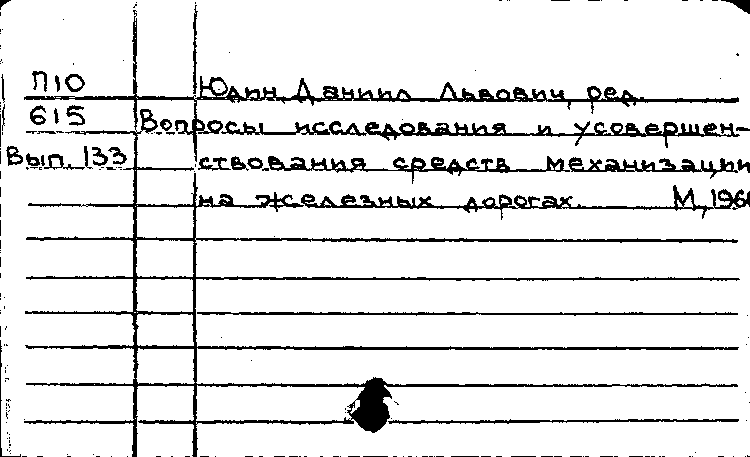 П10 Юдин, Даниил Львович, ред.
615 Вопросы исследования и усовершен-
Вып. 133 ствования средств механизации
на железных дорогах. М, 196